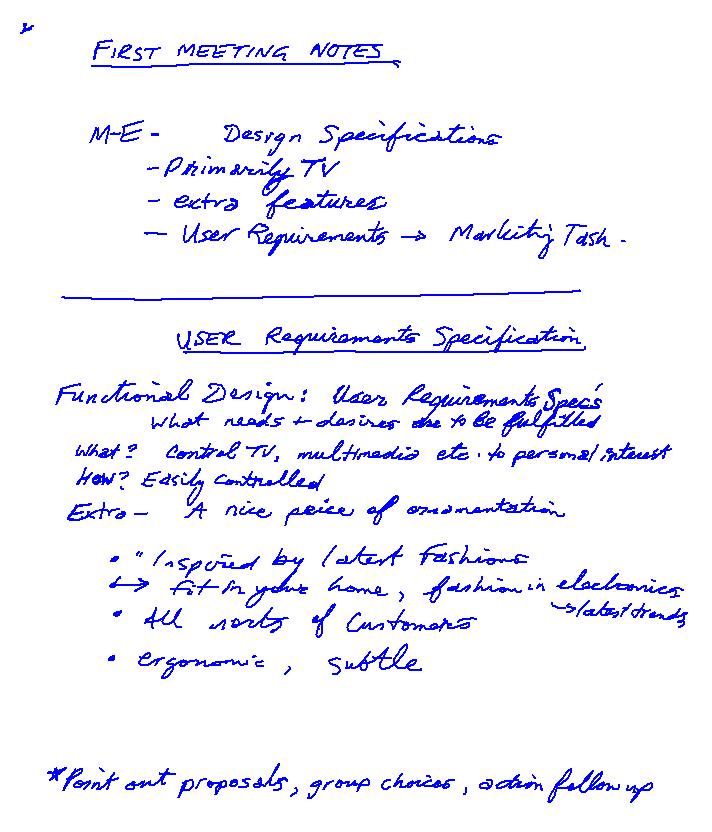 FIRST MEETING NOTES
M-E - Design Specifications
- Primarily TV
- extra features
- User Requirements → Markiting Task.
USER Requirements Specification
Functional Design: User Requirements Spec's
What needs + desires are to be fulfilled
What? Control TV, multimedia etc. to personal interest
How? Easily controlled
Extra - A nice peice of ornamentation
• "Inspired by latest Fashions
↔ fit in your home, fashion in electronics
→ latest trends
• All sorts of Customers
• ergonomic, subtle
*Point out proposals, group choices, action follow up